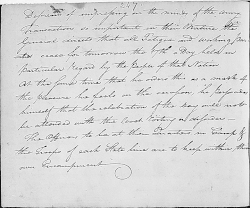 Desirous of impressing on the minds of the army
Transactions so important in their Nature, the
General directs that all Fatigue and working Par
ties cease for tomorrow the 17th Day held in
Particular Regard by the People of that Nation
At the same time that he orders this as a mark of
the pleasure he feels on the occasion he persuades
himself that the celebration of the day will not
be attended with the least Rioting or disorder
The Officers to be at their Quarters in Camp &
the Troops of each State Line are to keep within their
own Encampment